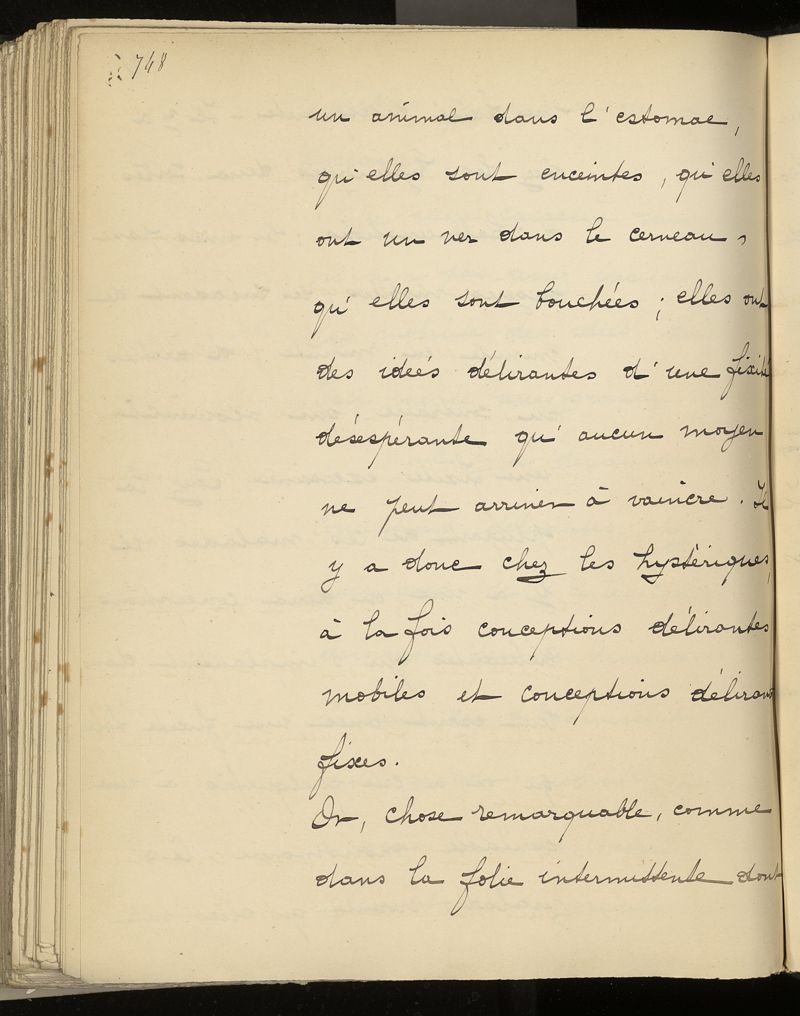 748
un animal dans l'estomac,
qu'elles sont enceintes, qu'elles
ont un ver dans le cerveau,
qu'elles sont bouchées ; elles ont
des idées délirantes d'une fixité
désespérante qu'aucun moyen
ne peut arriver à vaincre. Il
y a donc chez les hystériques,
à la fois conceptions délirantes
mobiles et conceptions délirant
fixes.
Or, chose remarquable, comme
dans la folie intermittente dont